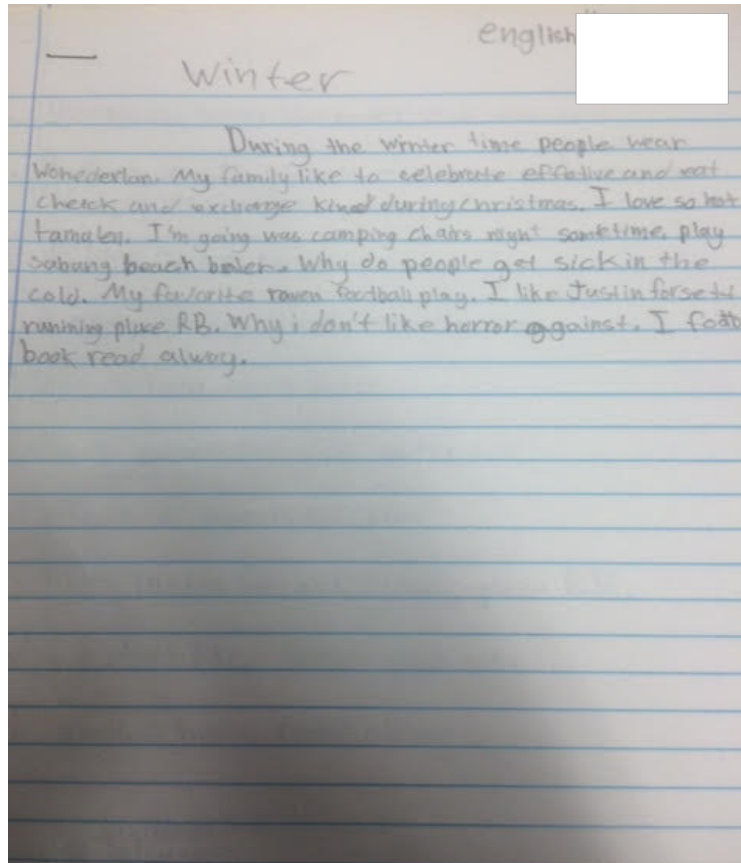 english
Winter
During the winter time people wear
Wonederlan. My family like to celebrate effetive and eat
cheack and excharge kind during christmas. I love so hot
tamales. I'm going was camping chairs night sometime. play
Sabang beach baler. Why do people get sick in the
cold. My favorite raven football play. I like Justin forsett
running place RB. Why i don't like horror against. I footb
book read alway.